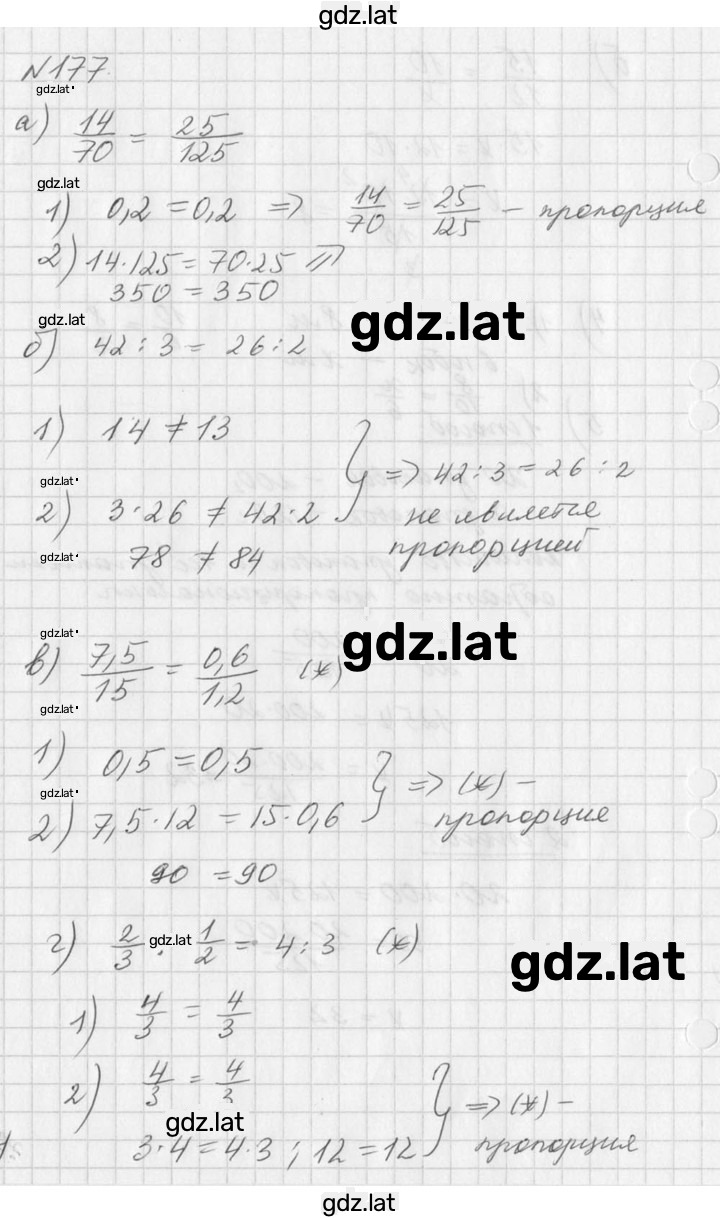 gdz.lat
N177.
gdz.lat
а) 14/70 = 25/125
gdz.lat
1) 0,2 = 0,2 => 14/70 = 25/125 – пропорция
2) 14·125 = 70·25 =>
350 = 350
gdz.lat
gdz.lat
б) 42 : 3 = 26 : 2
1) 14 ≠ 13
gdz.lat
=> 42 : 3 = 26 : 2
2) 3·26 ≠ 42·2
не является
gdz.lat
78 ≠ 84
пропорцией
gdz.lat
gdz.lat
в) 7,5/15 = 0,6/1,2 (*)
gdz.lat
1) 0,5 = 0,5
gdz.lat
} => (*) –
2) 7,5·12 = 15·0,6
пропорция
90 = 90
г) 2/3 : 1/2 = 4 : 3 (*)
gdz.lat
gdz.lat
1) 4/3 = 4/3
2) 4/3 = 4/3
} => (*) –
gdz.lat
3·4 = 4·3 ; 12 = 12
пропорция
gdz.lat